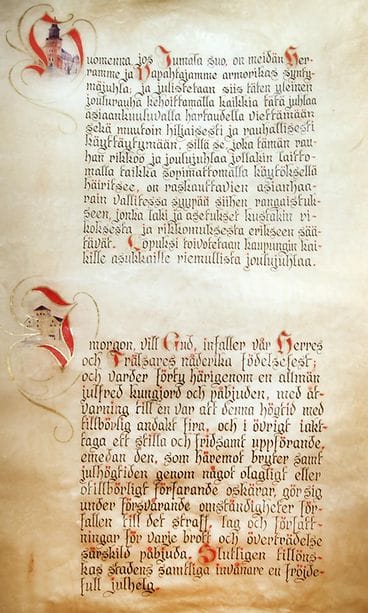 Huomenna, jos Jumala suo, on meidän Her-
ramme ja Vapahtajamme armorikas synty-
mäjuhla, ja julistetaan siis täten yleinen
joulurauha kehoittamalla kaikkia tätä juhlaa
asiaankuuluvalla hartaudella viettämään
sekä muutoin hiljaisesti ja rauhallisesti
käyttäytymään, sillä se, joka tämän rau-
han rikkoo ja joulujuhlaa jollakin laitto-
malla taikka sopimattomalla käytöksellä
häiritsee, on raskauttavien asianhaa-
rain vallitessa syypää siihen rangaistuk-
seen, jonka laki ja asetukset kustakin ri-
koksesta ja rikkomuksesta erikseen sää-
tävät. Lopuksi toivotetaan kaupungin kai-
kille asukkaille riemullista joulujuhlaa.
I morgon, vill Gud, infaller vår Herres
och Frälsares nåderika födelsefest;
och varder förty härigenom en allmän
julfred kungjord och påbjuden, med åt-
varning till en var att denna högtid med
tillbörlig andakt fira, och i övrigt iakt-
taga ett stilla och fridsamt uppförande,
emedan den, som häremot bryter samt
julhögtiden genom något olagligt eller
otillbörligt förfarande oskärar, gör sig
under försvårande omständigheter för-
fallen till det straff, lag och författ-
ningar för varje brott och överträdelse
särskild påbjuda. Slutligen tillöns-
kas stadens samtliga invånare en fröjde-
full julhelg.